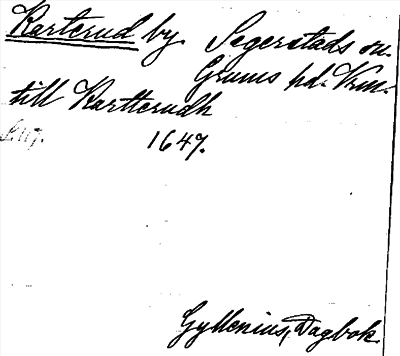 Karterud by. Segerstads sn.
Grums hd. Vrm.
till Kartterudh
s. 117.
1647.
Gyllenius, Dagbok.